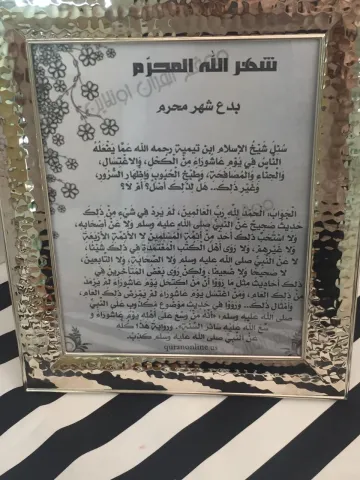 شهر الله المحرّم
موقع القرآن اونلاين
بدع شهر محرم
سُئِلَ شَيْخُ الإسلام ابن تيمية رحمه الله عَمّا يَفْعَلُهُ
النّاسُ فِي يَوْمِ عَاشُورَاءَ مِنْ الكُحْلِ، وَالاغْتِسَالِ،
وَالحِنَّاءِ وَالمُصَافَحَةِ، وَطَبْخِ الحُبُوبِ وَإِظْهَارِ السُّرُورِ،
وَغَيْرِ ذَلِكَ... هَلْ لِذَلِكَ أَصْلٌ؟ أَمْ لا؟
الجَوَابُ: الحَمْدُ لِلَّهِ رَبِّ العَالَمِينَ، لَمْ يَرِدْ فِي شَيْءٍ مِنْ ذَلِكَ
حَدِيثٌ صَحِيحٌ عَنْ النَّبِيِّ صلى الله عليه وسلم وَلا عَنْ أَصْحَابِهِ،
وَلا اسْتَحَبَّ ذَلِكَ أَحَدٌ مِنْ أَئِمَّةِ المُسْلِمِينَ لا الأَئِمَّةِ الأَرْبَعَةِ
وَلا غَيْرِهِمْ، وَلا رَوَى أَهْلُ الكُتُبِ المُعْتَمَدَةِ فِي ذَلِكَ شَيْئًا،
لا عَنْ النَّبِيِّ صلى الله عليه وسلم وَلا الصَّحَابَةِ، وَلا التَّابِعِينَ،
لا صَحِيحًا وَلا ضَعِيفًا، وَلَكِنْ رَوَى بَعْضُ المُتَأَخِّرِينَ فِي
ذَلِكَ أَحَادِيثَ مِثْلَ مَا رَوَوْا أَنَّ مَنْ اكْتَحَلَ يَوْمَ عَاشُورَاءَ لَمْ يَرْمَدْ
مِنْ ذَلِكَ العَامِ، وَمَنْ اغْتَسَلَ يَوْمَ عَاشُورَاءَ لَمْ يَمْرَضْ ذَلِكَ العَامِ،
وَأَمْثَالَ ذَلِكَ.. وَرَوَوْا فِي حَدِيثٍ مَوْضُوعٍ مَكْذُوبٍ عَلَى النَّبِيِّ
صلى الله عليه وسلم، أَنَّهُ مَنْ وَسَّعَ عَلَى أَهْلِهِ يَوْمَ عَاشُورَاءَ وَ
سَّعَ الله عَلَيْهِ سَائِرَ السَّنَةِ. وَرِوَايَةُ هَذَا كُلِّهِ
عَنْ النَّبِيِّ صلى الله عليه وسلم كَذِبٌ.
quranonline.us